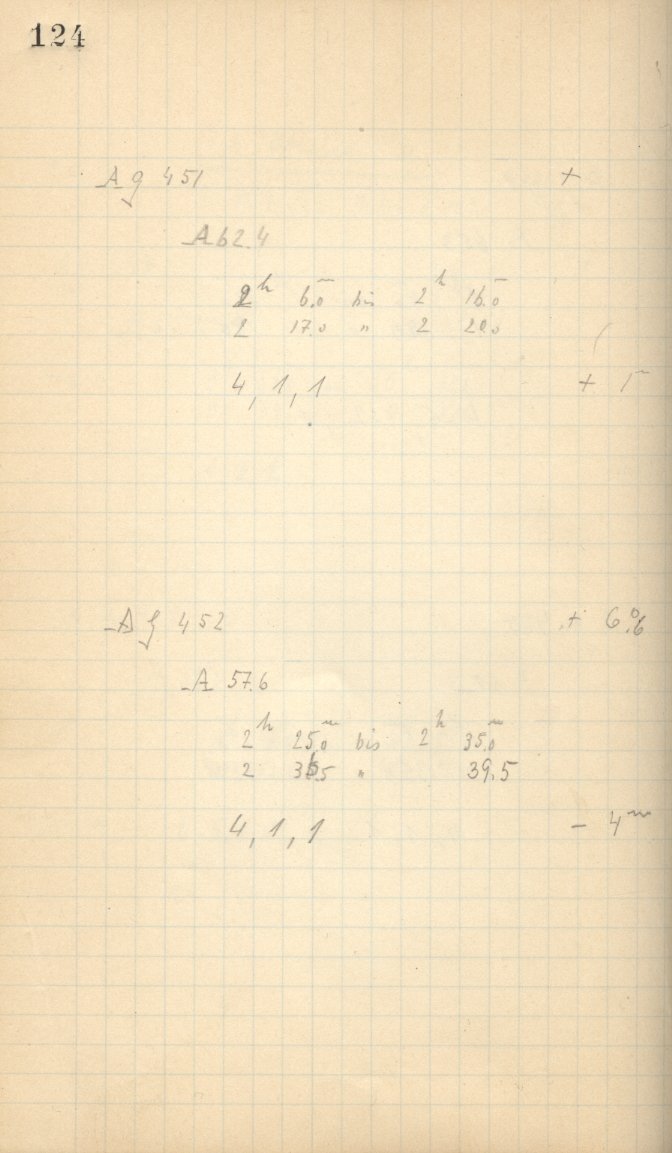 124
Ag 451 +
A 62.4
2h 6.0m bis 2h 16.0m
2 17.0 " 2 20.0
4, 1, 1 + 1m
Ag 452 + 6.06
A 57.6
2h 25.0m bis 2h 35.0m
2 36.5 " 39.5
4, 1, 1 - 4m